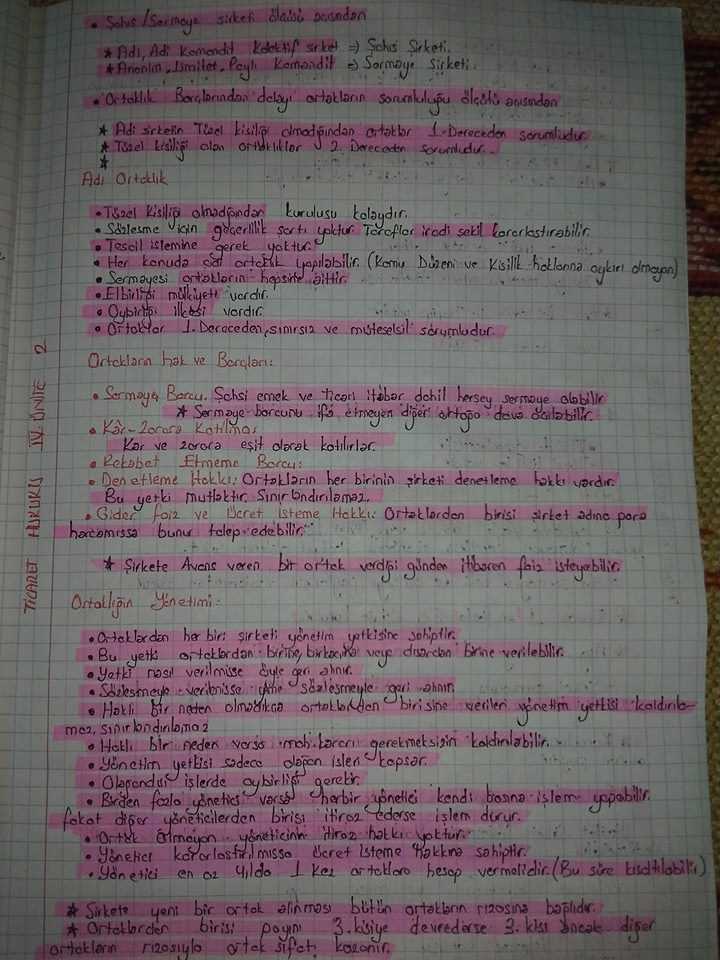 • Şahıs / Sermaye şirketi ölçüsü açısından
* Adi, Adi Komandit Kolektif şirket => Şahıs Şirketi.
* Anonim, Limitet, Paylı Komandit => Sermaye Şirketi.
• Ortaklık Borçlarından dolayı ortakların sorumluluğu ölçütü açısından
* Adi şirketin Tüzel kişiliği olmadığından ortaklar 1. Dereceden sorumludur.
* Tüzel kişiliği olan ortaklıklar 2. Dereceden sorumludur.
*
Adi Ortaklık
• Tüzel Kişiliği olmadığından kuruluşu kolaydır.
• Sözleşme için geçerlilik şartı yoktur. Taraflar iradi şekil kararlaştırabilir.
• Tescil işlemine gerek yoktur.
• Her konuda adi ortaklık yapılabilir. (Kamu Düzeni ve Kişilik haklarına aykırı olmayan)
• Sermayesi ortakların hepsine aittir.
• Elbirliği mülkiyeti vardır.
• Oybirliği ilkesi vardır.
• Ortaklar 1. Dereceden, sınırsız ve müteselsil sorumludur.
Ortakların hak ve Borçları:
• Sermaye Borcu. Şahsi emek ve ticari itibar dahil herşey sermaye olabilir
* Sermaye borcunu ifa etmeyen diğer ortağa dava açılabilir.
• Kâr-Zarara Katılma:
Kar ve zarara eşit olarak katılırlar.
• Rekabet Etmeme Borcu:
• Denetleme Hakkı: Ortakların her birinin şirketi denetleme hakkı vardır.
Bu yetki mutlaktır. Sınırlandırılamaz.
• Gider, faiz ve Ücret İsteme Hakkı: Ortaklardan birisi şirket adına para
harcamışsa bunu talep edebilir.
* Şirkete Avans veren bir ortak verdiği günden itibaren faiz isteyebilir.
TİCARET HUKUKU IV. ÜNİTE 2
Ortaklığın Yönetimi:
• Ortaklardan her biri şirketi yönetim yetkisine sahiptir.
• Bu yetki ortaklardan birine, birkaçına veya dışardan birine verilebilir.
• Yetki nasıl verilmişse öyle geri alınır.
• Sözleşmeyle verilmişse yine sözleşmeyle geri alınır.
• Haklı bir neden olmadıkça ortaklardan birisine verilen yönetim yetkisi kaldırıla-
maz, sınırlandırılamaz
• Haklı bir neden varsa mah. kararı gerekmeksizin kaldırılabilir.
• Yönetim yetkisi sadece olağan işleri kapsar.
• Olağandışı işlerde oybirliği gerekir.
• Birden fazla yönetici varsa herbir yönetici kendi başına işlem yapabilir.
fakat diğer yöneticilerden birisi itiraz ederse işlem durur.
• Ortak Olmayan yöneticinin itiraz hakkı yoktur.
• Yönetici kararlaştırılmışsa ücret isteme hakkına sahiptir.
• Yönetici en az yılda 1 kez ortaklara hesap vermelidir. (Bu süre kısaltılabilir)
* Şirkete yeni bir ortak alınması bütün ortakların rızasına bağlıdır.
* Ortaklardan birisi payını 3. kişiye devrederse 3. kişi ancak diğer
ortakların rızasıyla ortak sıfatı kazanır.